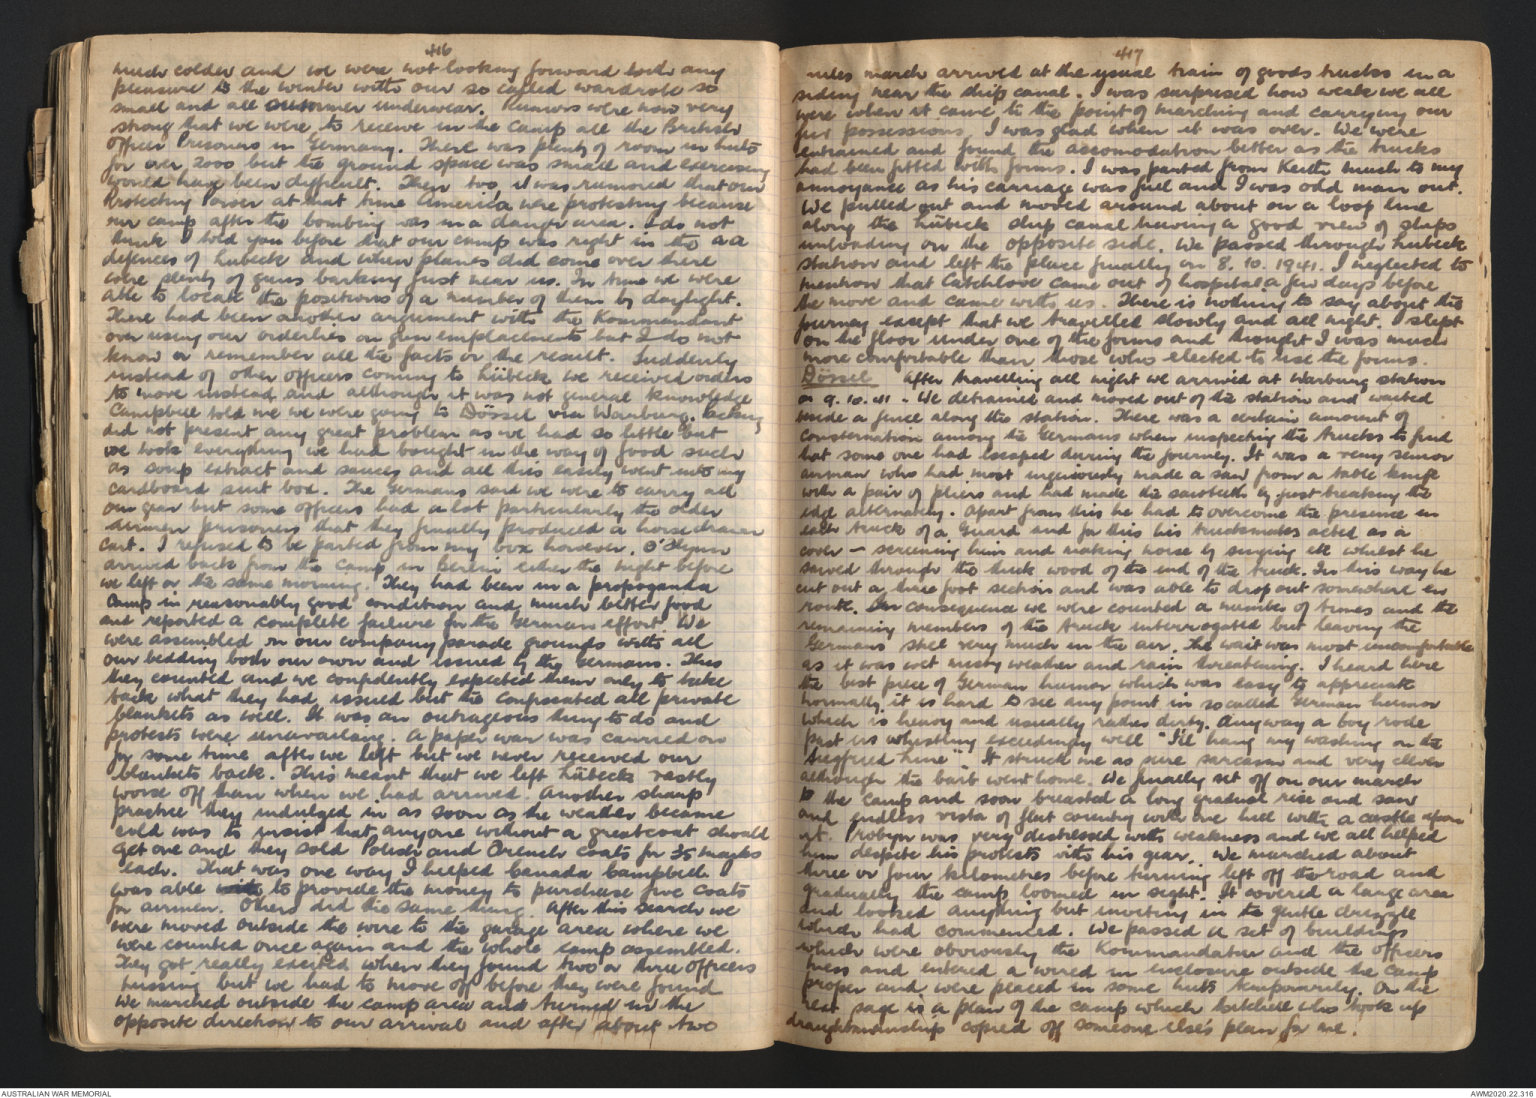 416
much colder and we were not looking forward with any
pleasure to the winter with our so called wardrobe so
small and all summer underwear. Rumors were now very
strong that we were to receive in the camp all the British
Officer Prisoners in Germany. There was plenty of room in huts
for over 2000 but the ground space was small and exercising
would have been difficult. Then too it was rumored that our
Protecting Power at that time America were protesting because
our camp after the bombing was in a danger area. I do not
think I told you before that our camp was right in the AA
defences of Lubeck and when planes did come over there
were plenty of guns barking just near us. In time we were
able to locate the positions of a number of them by daylight.
There had been another argument with the Kommandant
over using our orderlies on gun emplacements but I do not
know or remember all the facts or the result. Suddenly
instead of other officers coming to Lübeck we received orders
to move instead and although it was not general knowledge
Campbell told me we were going to Dössel via Warburg. Packing
did not present any great problem as we had so little but
we took everything we had bought in the way of food such
as soup extract and sauces and all this easily went into my
cardboard suit box. The Germans said we were to carry all
our gear but some officers had a lot particularly the older
prisoners that they finally produced a horse drawn
cart. I refused to be parted from my box however. O'Flynn
arrived back from the camp in Berlin either the night before
we left or the same morning. They had been in a propaganda
camp in reasonably good condition and much better food
and reported a complete failure for the German effort. We
were assembled on our company parade grounds with all
our bedding both our own and issued by the Germans. This
they counted and we confidently expected them only to take
back what they had issued but the confiscated all private
blankets as well. It was an outrageous thing to do and
protests were unavailing. A paper war was carried on
for some time after we left but we never received our
blankets back. This meant that we left Lübeck vastly
worse off than when we had arrived. Another sharp
practice they indulged in as soon as the weather became
cold was to insist that anyone without a greatcoat should
get one and they sold Polish and French coats for 35 marks
each. That was one way I helped Canada Campbell
was able to provide the money to purchase five coats
for airmen. Others did the same thing. After this search we
were moved outside the wire to the garage area where we
were counted once again and the whole camp assembled.
They got really excited when they found two or three officers
missing but we had to move off before they were found
We marched outside the camp area and turned in the
opposite direction to our arrival and after about two
417
miles march arrived at the usual train of goods trucks in a
siding near the ship canal. I was surprised how weak we all
were when it came to the point of marching and carrying our
few possessions. I was glad when it was over. We were
entrained and found the accomodation better as the trucks
had been fitted with forms. I was parted from Keith much to my
annoyance as his carriage was full and I was odd man out.
We pulled out and moved around about on a loop line
along the Lübeck ship canal having a good view of ships
unloading on the opposite side. We passed through Lubeck
station and left the place finally on 8.10.1941. I neglected to
mention that Catchlove came out of hospital a few days before
the move and came with us. There is nothing to say about the
journey except that we travelled slowly and all night. I slept
on the floor under one of the forms and thought I was much
more comfortable than those who elected to use the forms.
Dössel After travelling all night we arrived at Warburg station
on 9.10.41. We detrained and moved out of the station and waited
beside a fence along the station. There was a certain amount of
consternation among the Germans when inspecting the trucks to find
that some one had escaped during the journey. It was a very senior
airman who had most ingeniously made a saw from a table knife
with a pair of pliers and had made the sawteeth by just breaking the
edge alternately. Apart from this he had to overcome the presence in
each truck of a Guard and for this his truckmates acted as a
cover – screening him and making noise by singing etc whilst he
sawed through the thick wood of the end of the truck. In this way he
cut out a three foot section and was able to drop out somewhere en
route. In consequence we were counted a number of times and the
remaining members of the truck interrogated but leaving the
Germans still very much in the air. The wait was most uncomfortable
as it was wet misty weather and rain threatening. I heard here
the best piece of German humor which was easy to appreciate
normally it is hard to see any point in so called German humor
which is heavy and usually rather dirty. Anyway a boy rode
past us whistling exceedingly well "I'll hang my washing on the
Siegfried Line". It struck me as pure sarcasm and very clever
although the barb went home. We finally set off on our march
to the camp and soon breasted a long gradual rise and saw
and endless vista of flat country with one hill with a castle upon
it. Robyn was very distressed with weakness and we all helped
him despite his protests with his gear. We marched about
three or four kilometres before turning left off the road and
gradually the camp loomed in sight. It covered a large area
and looked anything but inviting in the gentle drizzle
which had commenced. We passed a set of buildings
which were obviously the Kommandatur and the officers
mess and entered a wired in enclosure outside the camp
proper and were placed in some huts temporarily. On the
next page is a plan of the camp which who took up
draughtmanship copied off someone else's plan for me.
AUSTRALIAN WAR MEMORIAL
AWM2020.22.316